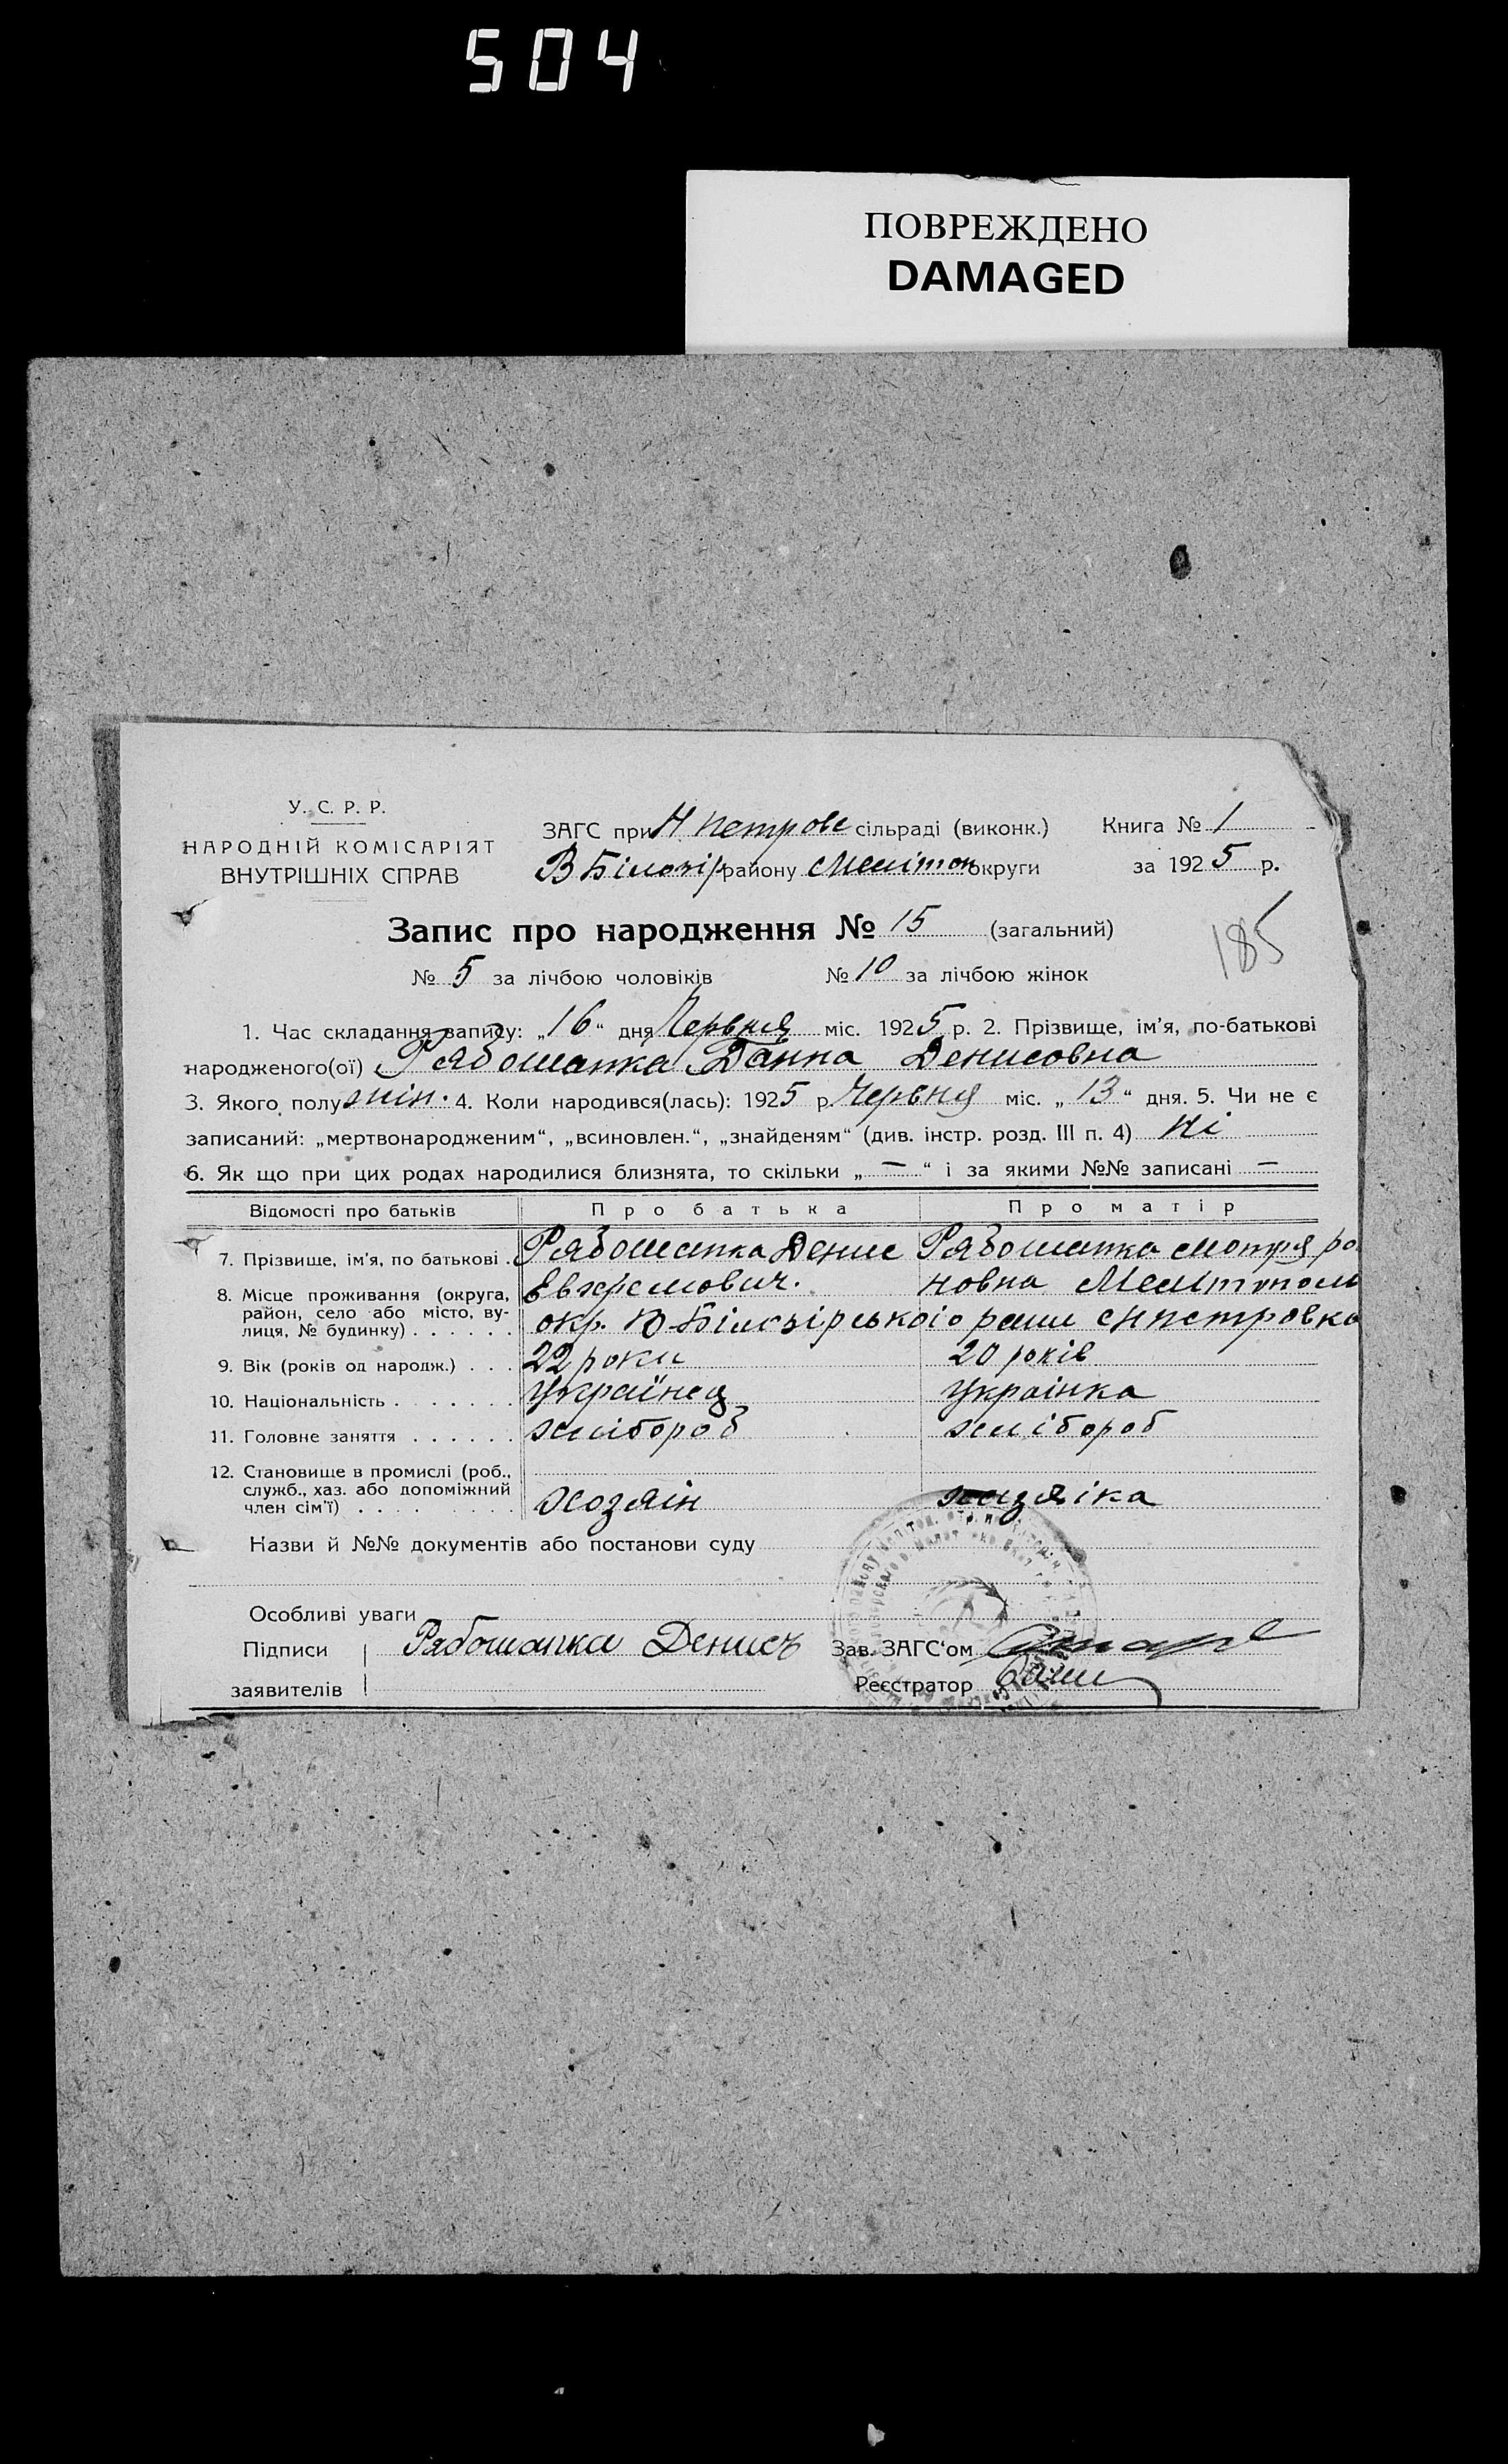 504
ПОВРЕЖДЕНО
DAMAGED
У. С. Р. Р.
НАРОДНІЙ КОМІСАРІЯТ
ВНУТРІШНІХ СПРАВ
ЗАГС при Н Петровс сільраді (виконк.)
В Білозір району Меліток округи
Книга № 1
за 1925 р.
Запис про народження № 15 (загальний)
№ 5 за лічбою чоловіків № 10 за лічбою жінок
185
1. Час складання запису: „16“ дня Червня міс. 1925 р. 2. Прізвище, ім’я, по-батькові
народженого(ої) Рябошапка Ганна Денисовна
3. Якого полу жін. 4. Коли народився(лась): 1925 р. Червня міс. „13“ дня. 5. Чи не є
записаний: „мертвонародженим“, „всиновлен.“, „знайденям“ (див. інстр. розд. III п. 4) Ні
6. Як що при цих родах народилися близнята, то скільки „—“ і за якими №№ записані —
Відомості про батьків Про батька Про матір
7. Прізвище, ім’я, по батькові . Рябошапка Денис Рябошапка мотря ро
8. Місце проживання (округа, район, село або місто, вулиця, № будинку) . . . . . . Евхремович. новна Мелітополь
окр. В-Білозірського раии с Н петровка
9. Вік (років од народж.) . . . 22 роки 20 років
10. Національність . . . . . . . Українец Украінка
11. Головне заняття . . . . . . хлібороб хлібороб
12. Становище в промислі (роб.,
служб., хаз. або допоміжний
член сім’ї) . . . . . . . . . Хозяін хазяіка
Назви й №№ документів або постанови суду
Особливі уваги
Підписи Рябошапка Денисъ Зав. ЗАГС‘ом
заявителів Реєстратор